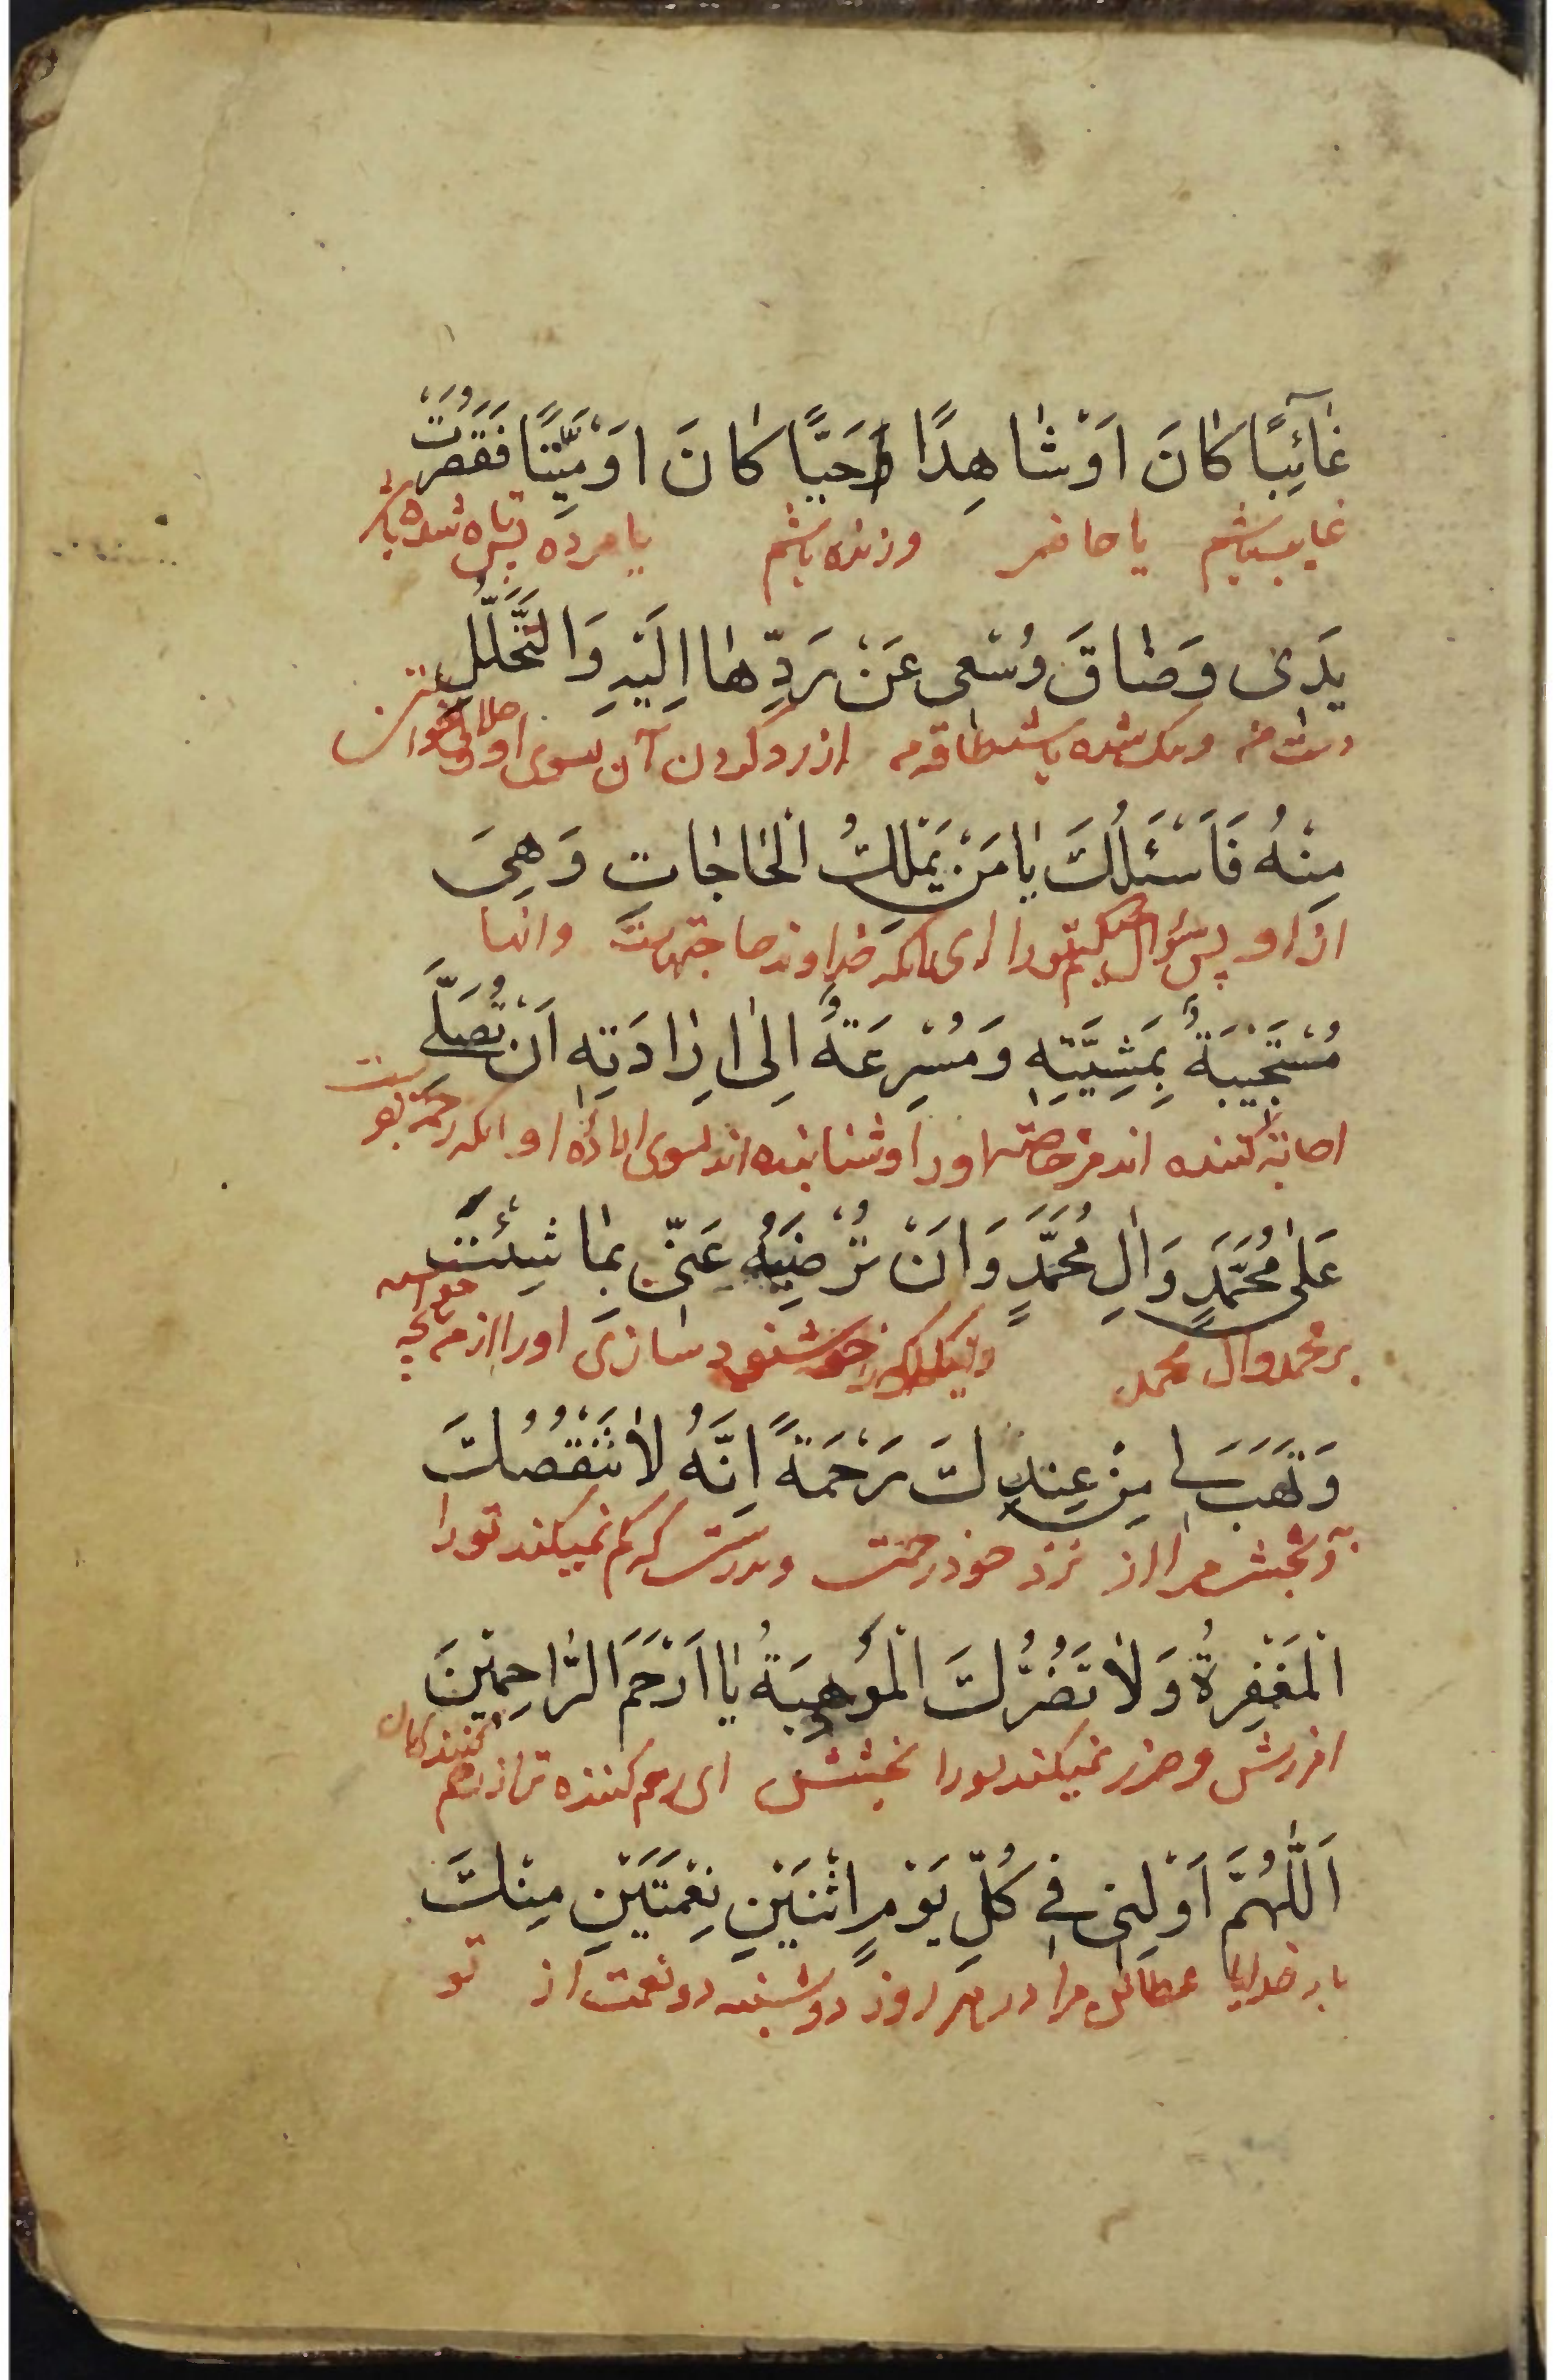 غٰآئِبًا كٰانَ اَوْ شٰاهِدًا وَحَيًّا كٰانَ اَوْ مَيِّتًا فَقَصُرَتْ
غایب باشم یا حاضر و زنده باشم یا مرده پس کوتاه شده باشد
يَدى وَضٰاقَ وُسْعى عَنْ رَدِّهٰا اِلَيْهِ وَالتَّحَلُّلِ
دست من و تنک شده باشد طاقة من از رد کردن آن بسوی او و حلالی خواستن
مِنْهُ فَاَسْئَلُكَ يٰا مَنْ يَمْلِكُ الْحٰاجٰاتِ وَهِىَ
از او پس سؤال میکنم تورا ای انکه خداوند حاجتهاست وانها
مُسْتَجيبَةٌ بِمَشِيَّتِهِ وَمُسْرِعَةٌ اِلٰى اِرٰادَتِهِ اَنْ تُصَلِّىَ
اجابة کننده اند مر خاصته اورا و شتابنده اند بسوی اراده او انکه رحمة بفرستی
عَلٰى مُحَمَّدٍ وَاٰلِ مُحَمَّدٍ وَاَنْ تُرْضِيَهُ عَنّى بِمٰا شِئْتَ
بر محمد وال محمد خوشنود سازی اورا از من بانچه خواسته
وَتَهَبَ لى مِنْ عِنْدِكَ رَحْمَةً اِنَّهُ لاٰ تَنْقُصُكَ
و بخش مرا از نزد خود رحمت و بدرستی که کم نمیکند تورا
الْمَغْفِرَةُ وَلاٰ تَضُرُّكَ الْمَوْهِبَةُ يٰا اَرْحَمَ الرّٰاحِمينَ
امرزش و ضرر نمیکند تورا بخشش ای رحم کننده تر از رحم کنندکان
اَللّٰهُمَّ اَوْلِنى فى كُلِّ يَوْمِ اثْنَيْنِ نِعْمَتَيْنِ مِنْكَ
بار خدایا عطا کن مرا در هر روز دوشنبه دو نعمت از تو